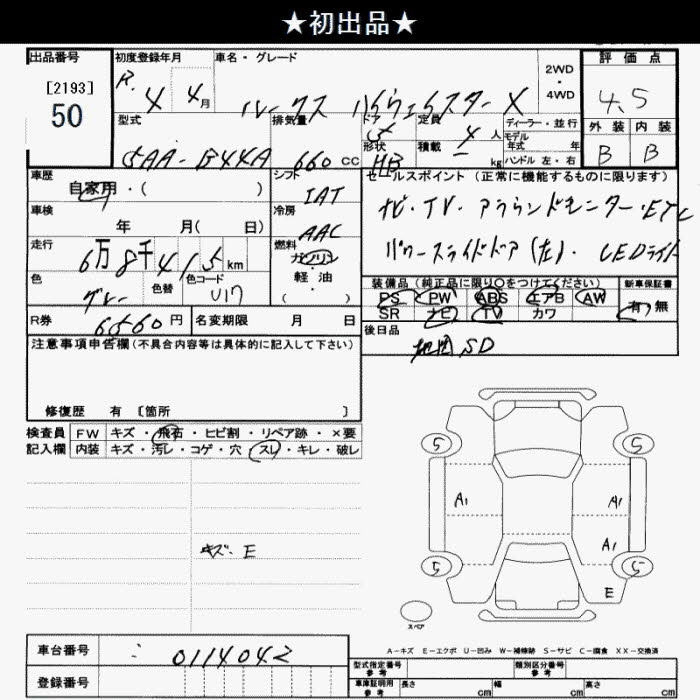 ★初出品★
出品番号 初度登録年月 車名・グレード 2WD・4WD 評価点
[2193] 50 R. 4 4月 ルークス ハイウェイスターX 4.5
型式 排気量 ドア 定員 ディーラー・並行 外装 内装
5AA-B44A 660CC 5 4人 モデル年式 年 B B
形状 HB 積載 kg ハンドル 左・右
車歴 シフト セールスポイント(正常に機能するものに限ります)
自家用・( ) IAT
車検 冷房 ナビ・TV・アラウンドモニター・ETC
年 月( 日) AAC
走行 燃料 パワースライドドア(左)・LEDライト
6万8千415km ガソリン
色 色替 色コード 軽・油 装備品(純正品に限り○をつけてください) 新車保証書
グレー U17 ( ) PS PW ABS エアB AW 有・無
SR ナビ TV カワ
R券 6560円 名変期限 月 日 後日品
注意事項申告欄(不具合内容等は具体的に記入して下さい) 地図SD
修復歴 有 [箇所 ]
検査員 FW キズ・飛石・ヒビ割・リペア跡・×要
記入欄 内装 キズ・汚レ・コゲ・穴・スレ・キレ・破レ
5 5
A1 A1
キズ・E A1
5 5
E
スペア
車台番号 0114042
A-キズ E-エクボ U-凹み W-補修跡 S-サビ C-腐食 XX-交換済
登録番号 型式指定番号 参考 類別区分番号 参考
車庫証明用 参考 長さ cm 幅 cm 高さ cm